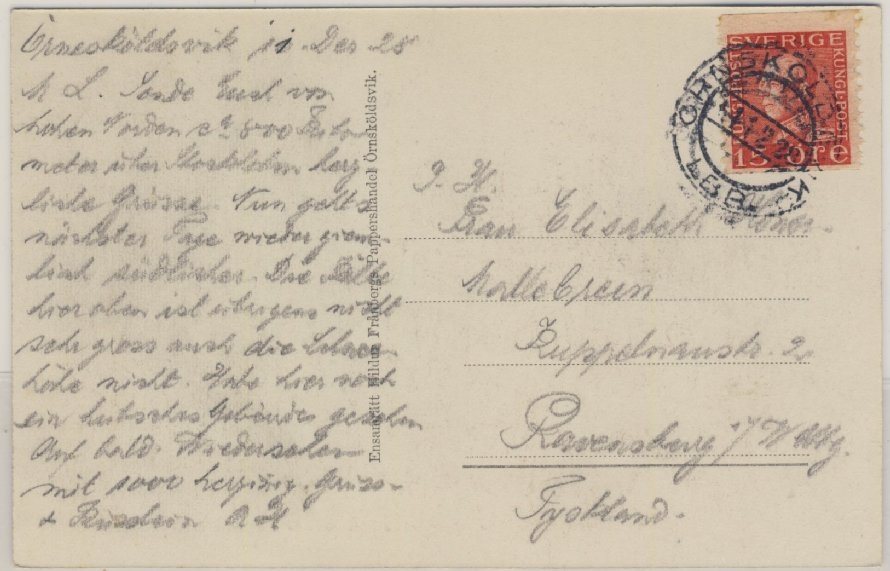 Örnesköldsvik 11. Dez 28
M. L. Sende Euch von
hohen Norden ca 800 Kilo-
meter über Stockholm herz-
liche Grüsse. Nun gehts
nächster Tage wieder ziem-
lich südlicher. Die Kälte
hier oben ist übrigens nicht
sehr gross auch die Schnee-
höhe nicht. Habe hier noch
ein hübsches Gebäude gesehen
Auf bald. Wiedersehen
mit 1000 herzinnig. Grüss-
&
Ensamrätt Hildur Frånbergs Pappershandel Örnsköldsvik.
SVERIGE
KUNGL·POST
15
ÖRNSKÖLDSVIK
P. H.
Frau Elisabeth
Ravensburg / Wttbg.
Tyskland.